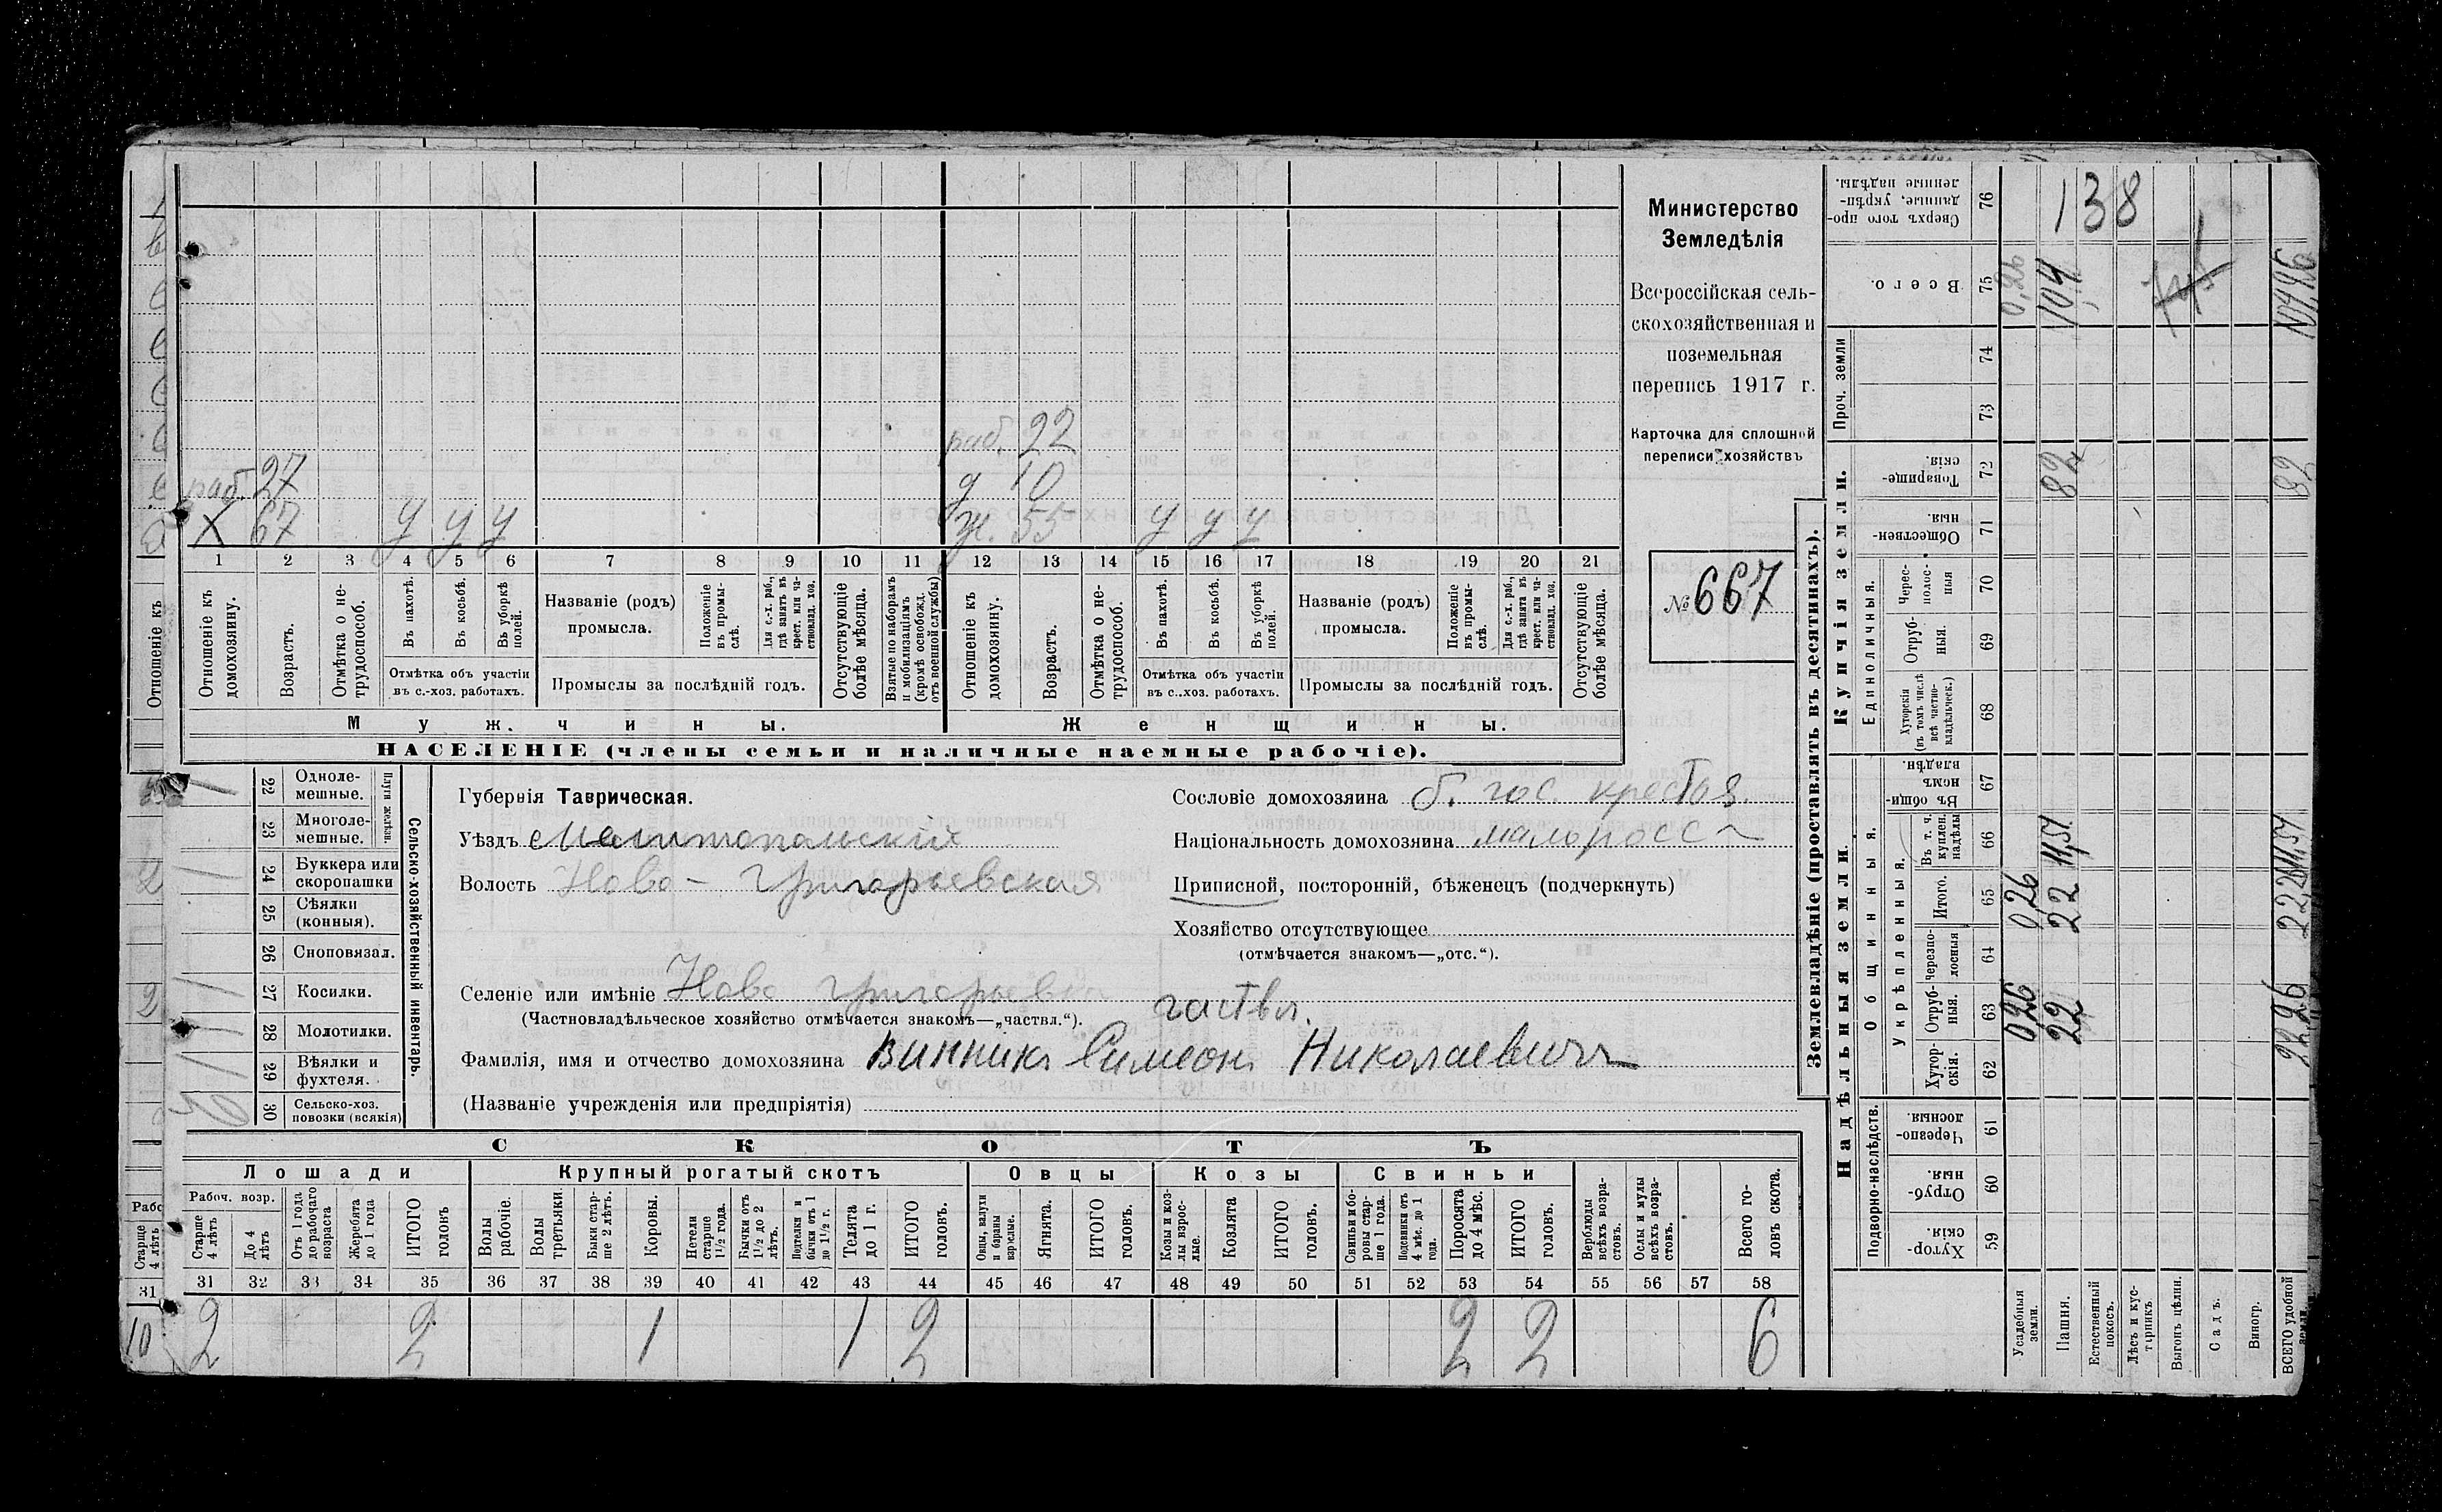 Министерство
Земледѣлія
Всероссійская сель-
скохозяйственная и
поземельная
перепись 1917 г.
Карточка для сплошной
переписи хозяйствъ
№ 667
раб. 22
раб. 27 д 10
Х 67 у у у ж. 55 у у у
1 2 3 4 5 6 7 8 9 10 11 12 13 14 15 16 17 18 19 20 21
Отношеніе къ домохозяину.
Возрастъ.
Отмѣтка о не-трудоспособ.
Въ пахотѣ.
Въ косьбѣ.
Въ уборкѣ полей.
Отмѣтка объ участіи въ с.-хоз. работахъ.
Названіе (родъ) промысла.
Положеніе въ промы-слѣ.
Для с.-х. раб., гдѣ занятъ въ крест. или ча-стновлад. хоз.
Промыслы за послѣдній годъ.
Отсутствующіе болѣе мѣсяца.
Взятые по наборамъ и мобилизаціямъ (кромѣ освобожд. отъ военной службы)
Отношеніе къ домохозяину.
Возрастъ.
Отмѣтка о не-трудоспособ.
Въ пахотѣ.
Въ косьбѣ.
Въ уборкѣ полей.
Отмѣтка объ участіи въ с..хоз. работахъ.
Названіе (родъ) промысла.
Положеніе въ промы-слѣ.
Для с.-х. раб., гдѣ занята въ крест. или ча-стновлад. хоз.
Промыслы за послѣдній годъ.
Отсутствующіе болѣе мѣсяца.
Мужчины. Женщины.
НАСЕЛЕНІЕ (члены семьи и наличные наемные рабочіе).
22 Одноле-мешные. 1
23 Многоле-мешные.
Плуги желѣзн.
24 Буккера или скоропашки 1
25 Сѣялки (конныя).
26 Сноповязал.
27 Косилки. 1
28 Молотилки. 1
29 Вѣялки и фухтеля. 1
30 Сельско-хоз. повозки (всякія)
Сельско-хозяйственный инвентарь.
Губернія Таврическая.
Уѣздъ Мелитопольскій
Волость Ново-Григорьевская
Селеніе или имѣніе Ново Григорьевка
(Частновладѣльческое хозяйство отмѣчается знакомъ—„частвл.“). частвл.
Фамилія, имя и отчество домохозяина Винникъ Симеонъ Николаевичъ
(Названіе учрежденія или предпріятія)
Сословіе домохозяина б. гос. крестья.
Національность домохозяина малоросс
Приписной, посторонній, бѣженецъ (подчеркнуть)
Хозяйство отсутствующее
(отмѣчается знакомъ—„отс.“).
СКОТЪ
Лошади Крупный рогатый скотъ Овцы Козы Свиньи
Рабоч. возр.
Старше 4 лѣтъ
До 4 лѣтъ
Отъ 1 года до рабочаго возраста
Жеребята до 1 года
ИТОГО головъ
Волы рабочіе.
Волы третьяки.
Быки стар-ше 2 лѣтъ.
Коровы.
Нетели старше 1½ года.
Бычки отъ 1½ до 2 лѣтъ.
Подтелки и бычки отъ 1 до 1½ г.
Телята до 1 г.
ИТОГО головъ.
Овцы, валухи и бараны взрослые.
Ягнята.
ИТОГО головъ.
Козы и коз-лы взрос-лые.
Козлята
ИТОГО головъ.
Свиньи и бо-ровы стар-ше 1 года.
Подсвинки отъ 4 мѣс. до 1 года.
Поросята до 4 мѣс.
ИТОГО головъ.
Верблюды всѣхъ возра-стовъ.
Ослы и мулы всѣхъ возра-стовъ.
Всего го-ловъ скота.
31 32 33 34 35 36 37 38 39 40 41 42 43 44 45 46 47 48 49 50 51 52 53 54 55 56 57 58
2 2 1 1 2 2 2 6
Землевладѣніе (проставлять въ десятинахъ).
Надѣльныя земли. Купчія земли.
Проч. земли
Подворно-наслѣдств.
Общинныя.
Укрѣпленныя.
Единоличныя.
Сверхъ того про-данные, укрѣп-ленные надѣлы. 76 138
Всего. 75 0,26 104 104,26
74
73
Товарище-скія. 72 82 82
Обществен-ныя. 71
Черес-полос-ныя 70
Отруб-ныя. 69
Хуторскія (въ томъ числѣ всѣ частно-владѣльческ.) 68
Въ общи-номъ владѣн. 67
Въ т. ч. куплен. надѣлы 66 11,51 11,51
Итого. 65 0,26 22 22,26
Черезпо-лосныя 64
Отруб-ныя. 63 0,26 22 22,26
Хутор-скія. 62
Черезпо-лосныя 61
Отруб-ныя. 60
Хутор-скія 59
Усадебныя земли.
Пашня.
Естественный покосъ.
Лѣсъ и кус-тарникъ
Выгонъ цѣлин.
Садъ.
Виногр.
ВСЕГО удобной земли.
Отношеніе къ
Рабо
Старше 4 лѣтъ
31
10